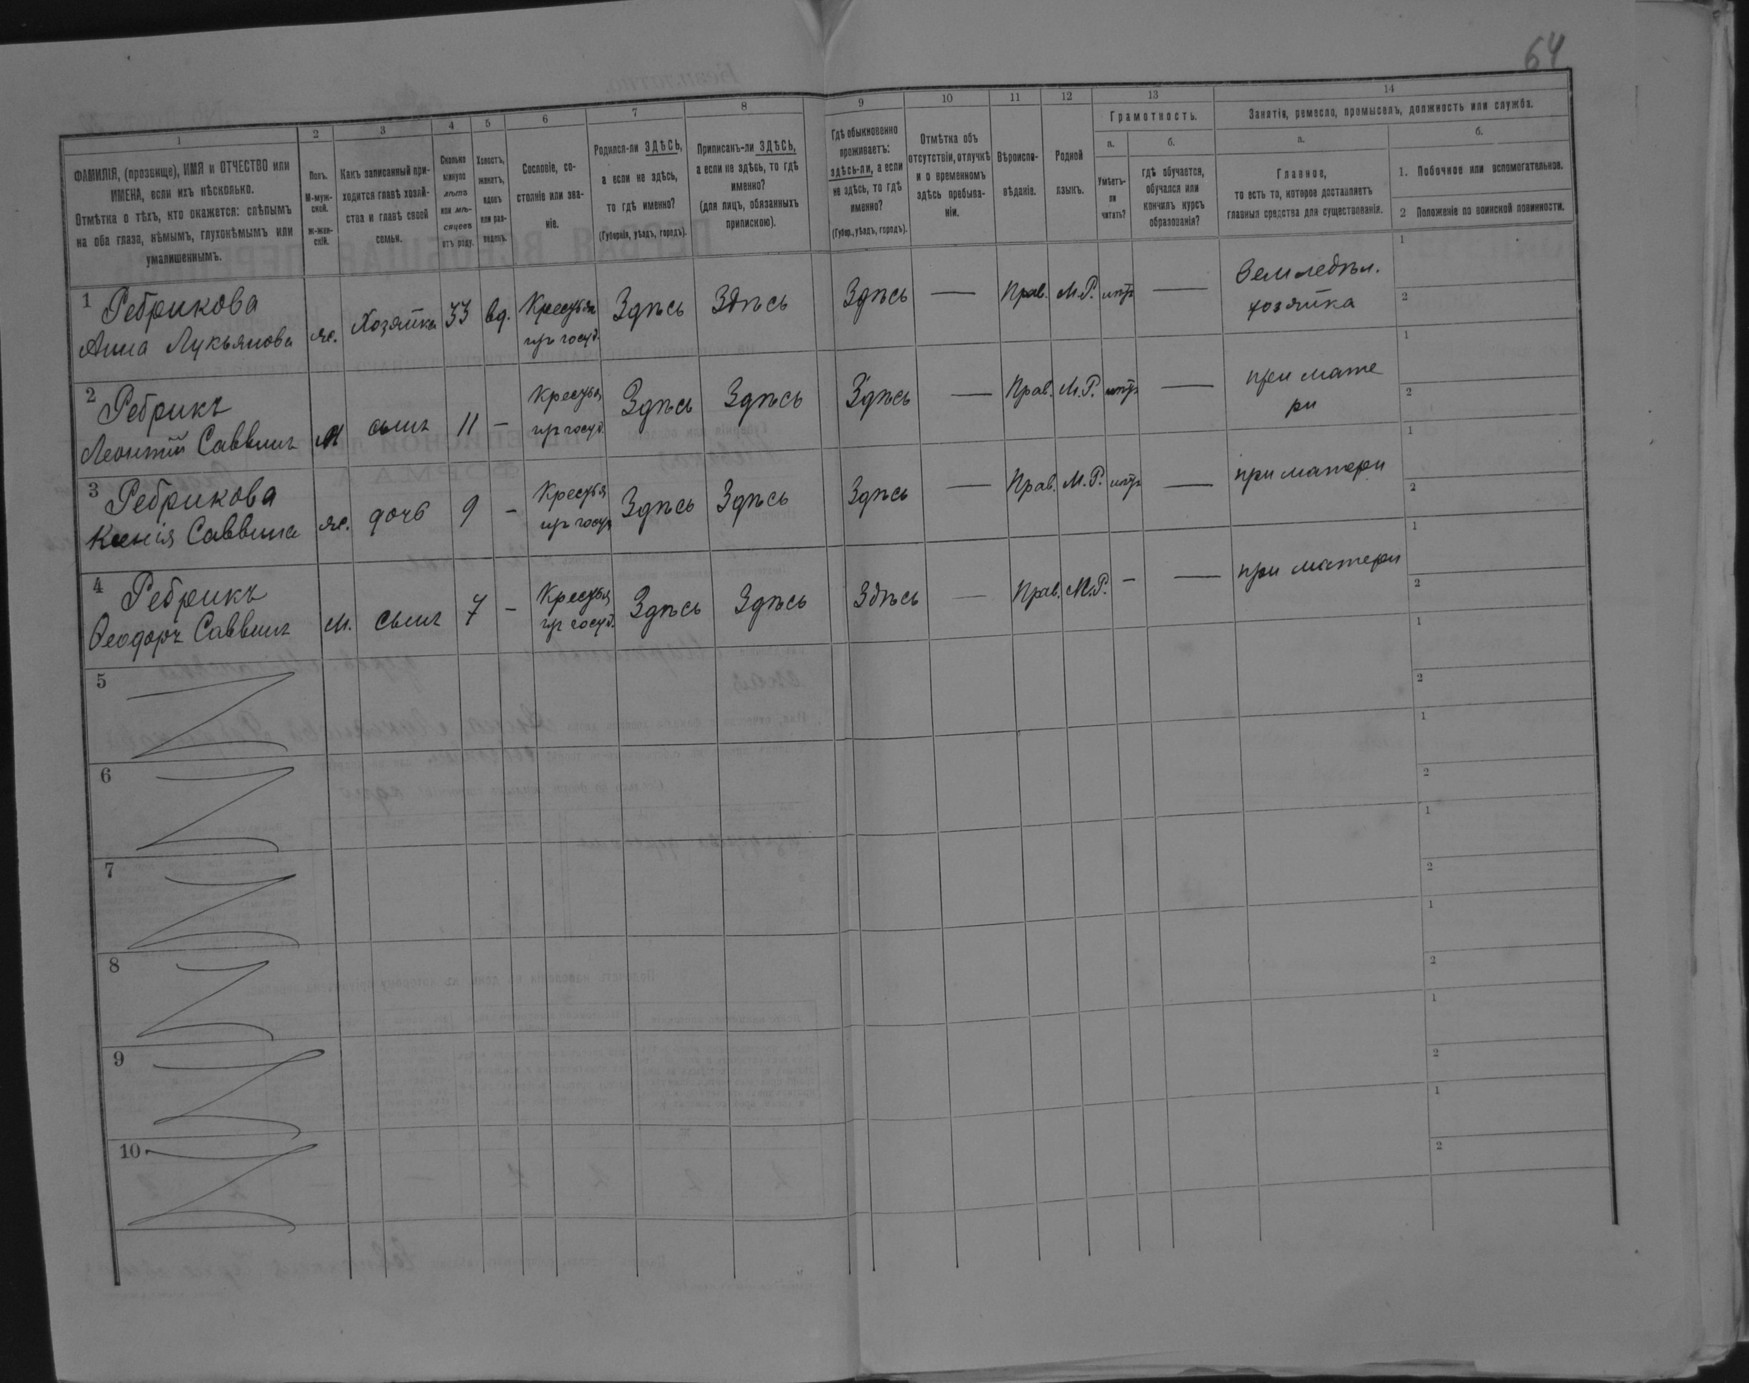 64
1 2 3 4 5 6 7 8 9 10 11 12 13 14
ФАМИЛІЯ, (прозвище), ИМЯ и ОТЧЕСТВО или
ИМЕНА, если ихъ нѣсколько.
Отмѣтка о тѣхъ, кто окажется: слѣпымъ
на оба глаза, нѣмымъ, глухонѣмымъ или
умалишеннымъ.
Полъ.
М-муж-
ской.
ж-жен-
скій.
Какъ записанный при-
ходится главѣ хозяй-
ства и главѣ своей
семьи.
Сколько
минуло
лѣтъ
или мѣ-
сяцевъ
отъ роду.
Холостъ,
женатъ,
вдовъ
или раз-
веденъ.
Сословіе, со-
стояніе или зва-
ніе.
Родился-ли ЗДѢСЬ,
а если не здѣсь,
то гдѣ именно?
(Губернія, уѣздъ, городъ).
Приписанъ-ли ЗДѢСЬ,
а если не здѣсь, то гдѣ
именно?
(для лицъ, обязанныхъ
припискою).
Гдѣ обыкновенно
проживаетъ:
здѣсь-ли, а если
не здѣсь, то гдѣ
именно?
(Губер., уѣздъ, городъ).
Отмѣтка объ
отсутствіи, отлучкѣ
и о временномъ
здѣсь пребыва-
ніи.
Вѣроиспо-
вѣданіе.
Родной
языкъ.
Грамотность.
а.
Умѣетъ-
ли
читать?
б.
гдѣ обучается,
обучался или
кончилъ курсъ
образованія?
Занятія, ремесло, промыселъ, должность или служба.
а.
Главное,
то есть то, которое доставляетъ
главныя средства для существованія.
б.
1. Побочное или вспомогательное.
2 Положеніе по воинской повинности.
1 Ребрикова
Анна Лукьянова ж. Хозяйка 33 вд. Крестья Здѣсь Здѣсь Здѣсь — Прав. М.Р. — Земледѣл.
хозяйка
1
2
2 Ребрикъ
Леонтій Саввинъ м сынъ 11 - Крестья Здѣсь Здѣсь Здѣсь — Прав. М.Р. — при мате
ри
1
2
3 Ребрикова
Ксенія Саввина ж. дочь 9 - Крестья Здѣсь Здѣсь Здѣсь — Прав. М.Р. — при матери
1
2
4 Ребрикъ
Ѳеодоръ Саввинъ м. сынъ 7 - Крестья Здѣсь Здѣсь Здѣсь — Прав. М.Р. - — при матери
1
2
5
1
2
6
1
2
7
1
2
8
1
2
9
1
2
10
1
2